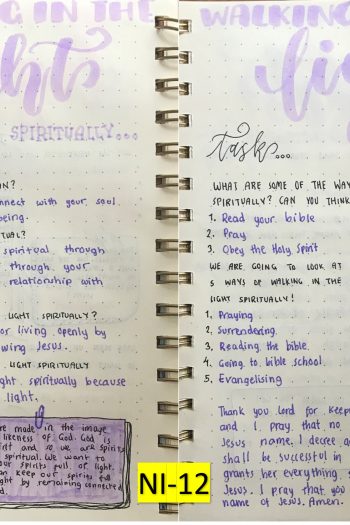 G IN THE
ght
SPIRITUALLY...
AN?
nnect with your soul
being.
TUAL?
spiritual through
through your
relationship with
LIGHT SPIRITUALLY?
or living openly by
wing Jesus.
LIGHT SPIRITUALLY
ght spiritually because
light.
re made in the image
likeness of God. God is
irit and so we are spirits
spiritual. We want to
our spirits full of light.
can keep our spirits full
ght by remaining connected
WALKING
lig
task...
WHAT ARE SOME OF THE WAY
SPIRITUALLY? CAN YOU THINK
1. Read your bible
2. Pray
3. Obey the Holy Spirit
WE ARE GOING TO LOOK AT
5 WAYS OF WALKING IN THE
LIGHT SPIRITUALLY!
1. Praying
2. Surrendering.
3. Reading the bible.
4. Going to bible school.
5. Evangelising
Thank you Lord for keep
and I pray that no
Jesus name. I decree a
shall be successful in
grants her everything
Jesus. I pray that you
name of Jesus. Amen.
NI-12